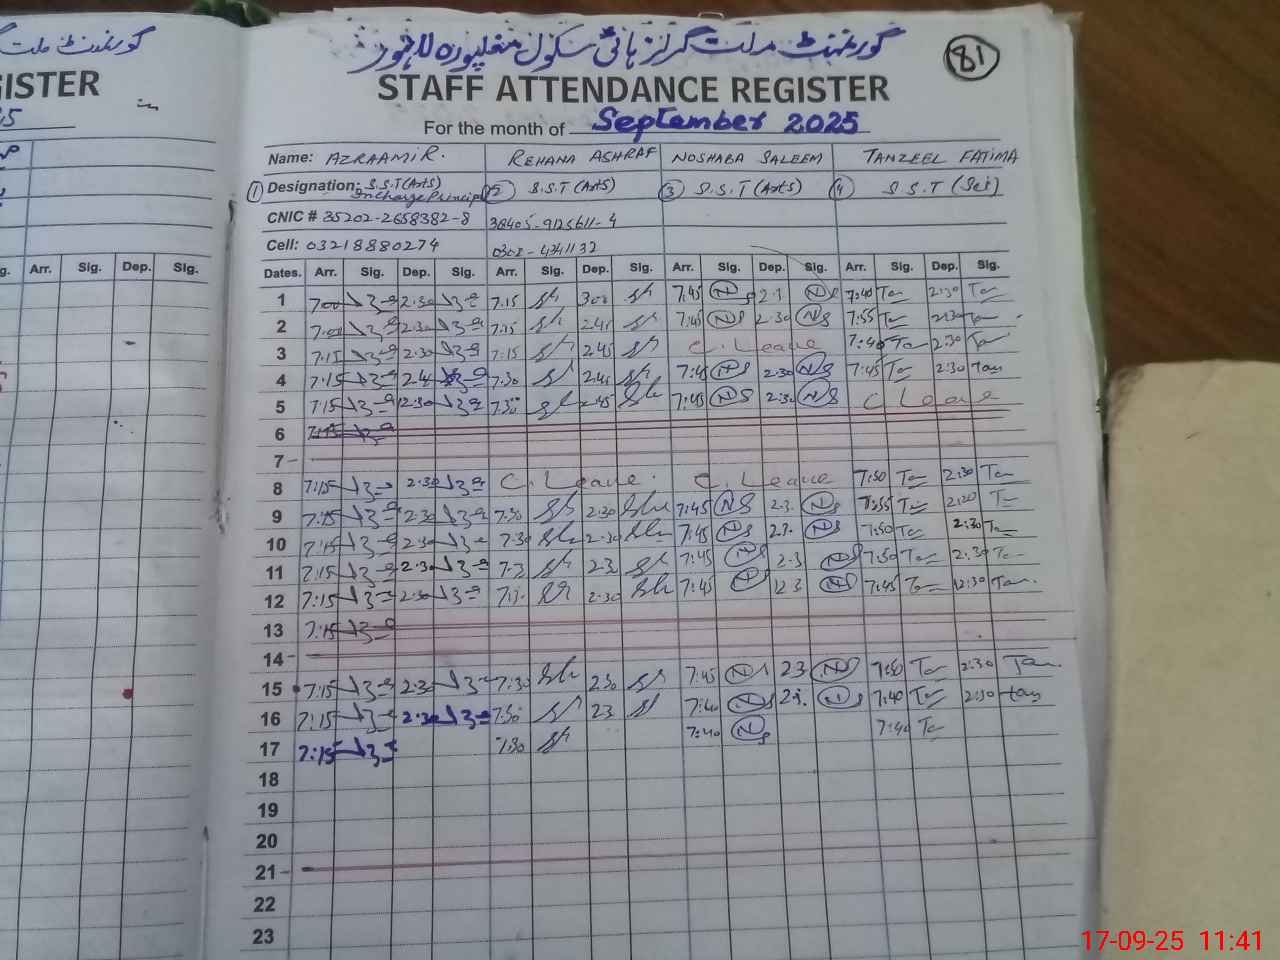 گورنمنٹ ملت
گورنمنٹ ملت گرلز ہائی سکول مغلپورہ لاہور
81
ISTER
STAFF ATTENDANCE REGISTER
For the month of September 2025
Name: AZRA AMIR. REHANA ASHRAF NOSHABA SALEEM TANZEEL FATIMA
① Designation: S.S.T (Arts) Incharge Principal ② S.S.T (Arts) ③ S.S.T (Arts) ④ S.S.T (Sci)
CNIC # 35202-2658382-8 38405-9125611-4
Cell: 03218880274 0308-4341132
g. Arr. Sig. Dep. Sig.
Dates. Arr. Sig. Dep. Sig. Arr. Sig. Dep. Sig. Arr. Sig. Dep. Sig. Arr. Sig. Dep. Sig.
1 7:00 2:30 7:15 3:00 7:45 NS 2:3 NS 7:40 Tan 2:30 Tan
2 7:00 2:30 7:15 2:45 7:45 NS 2:30 NS 7:55 Tan 2:30 Tan
3 7:15 2:30 7:15 2:45 C. Leave 7:40 Tan 2:30 Tan
4 7:15 2:4 7:30 2:45 7:45 NS 2:30 NS 7:45 Tan 2:30 Tan
5 7:15 2:30 7:30 2:45 7:45 NS 2:30 NS C Leave
6 7:15
7
8 7:15 2:30 C. Leave. C. Leave 7:50 Tan 2:30 Tan
9 7:15 2:30 7:30 2:30 7:45 NS 2:3. NS 7:55 Tan 2:30 Tan
10 7:15 2:30 7:30 2:30 7:45 NS 2:3. NS 7:50 Tan 2:30 Tan
11 7:15 2:30 7:3 2:3 7:45 NS 2:3 NS 7:50 Tan 2:30 Tan
12 7:15 2:30 7:3. 2:30 7:45 NS 2:3 NS 7:45 Tan 12:30 Tan.
13 7:15
14
15 7:15 2:3 7:30 2:30 7:45 NS 2:3 NS 7:50 Tan 2:30 Tan.
16 7:15 2:30 7:30 2:3 7:40 NS 2:3. NS 7:40 Tan 2:30 tan
17 7:15 7:30 7:40 NS 7:40 Tan
18
19
20
21
22
23
17-09-25 11:41